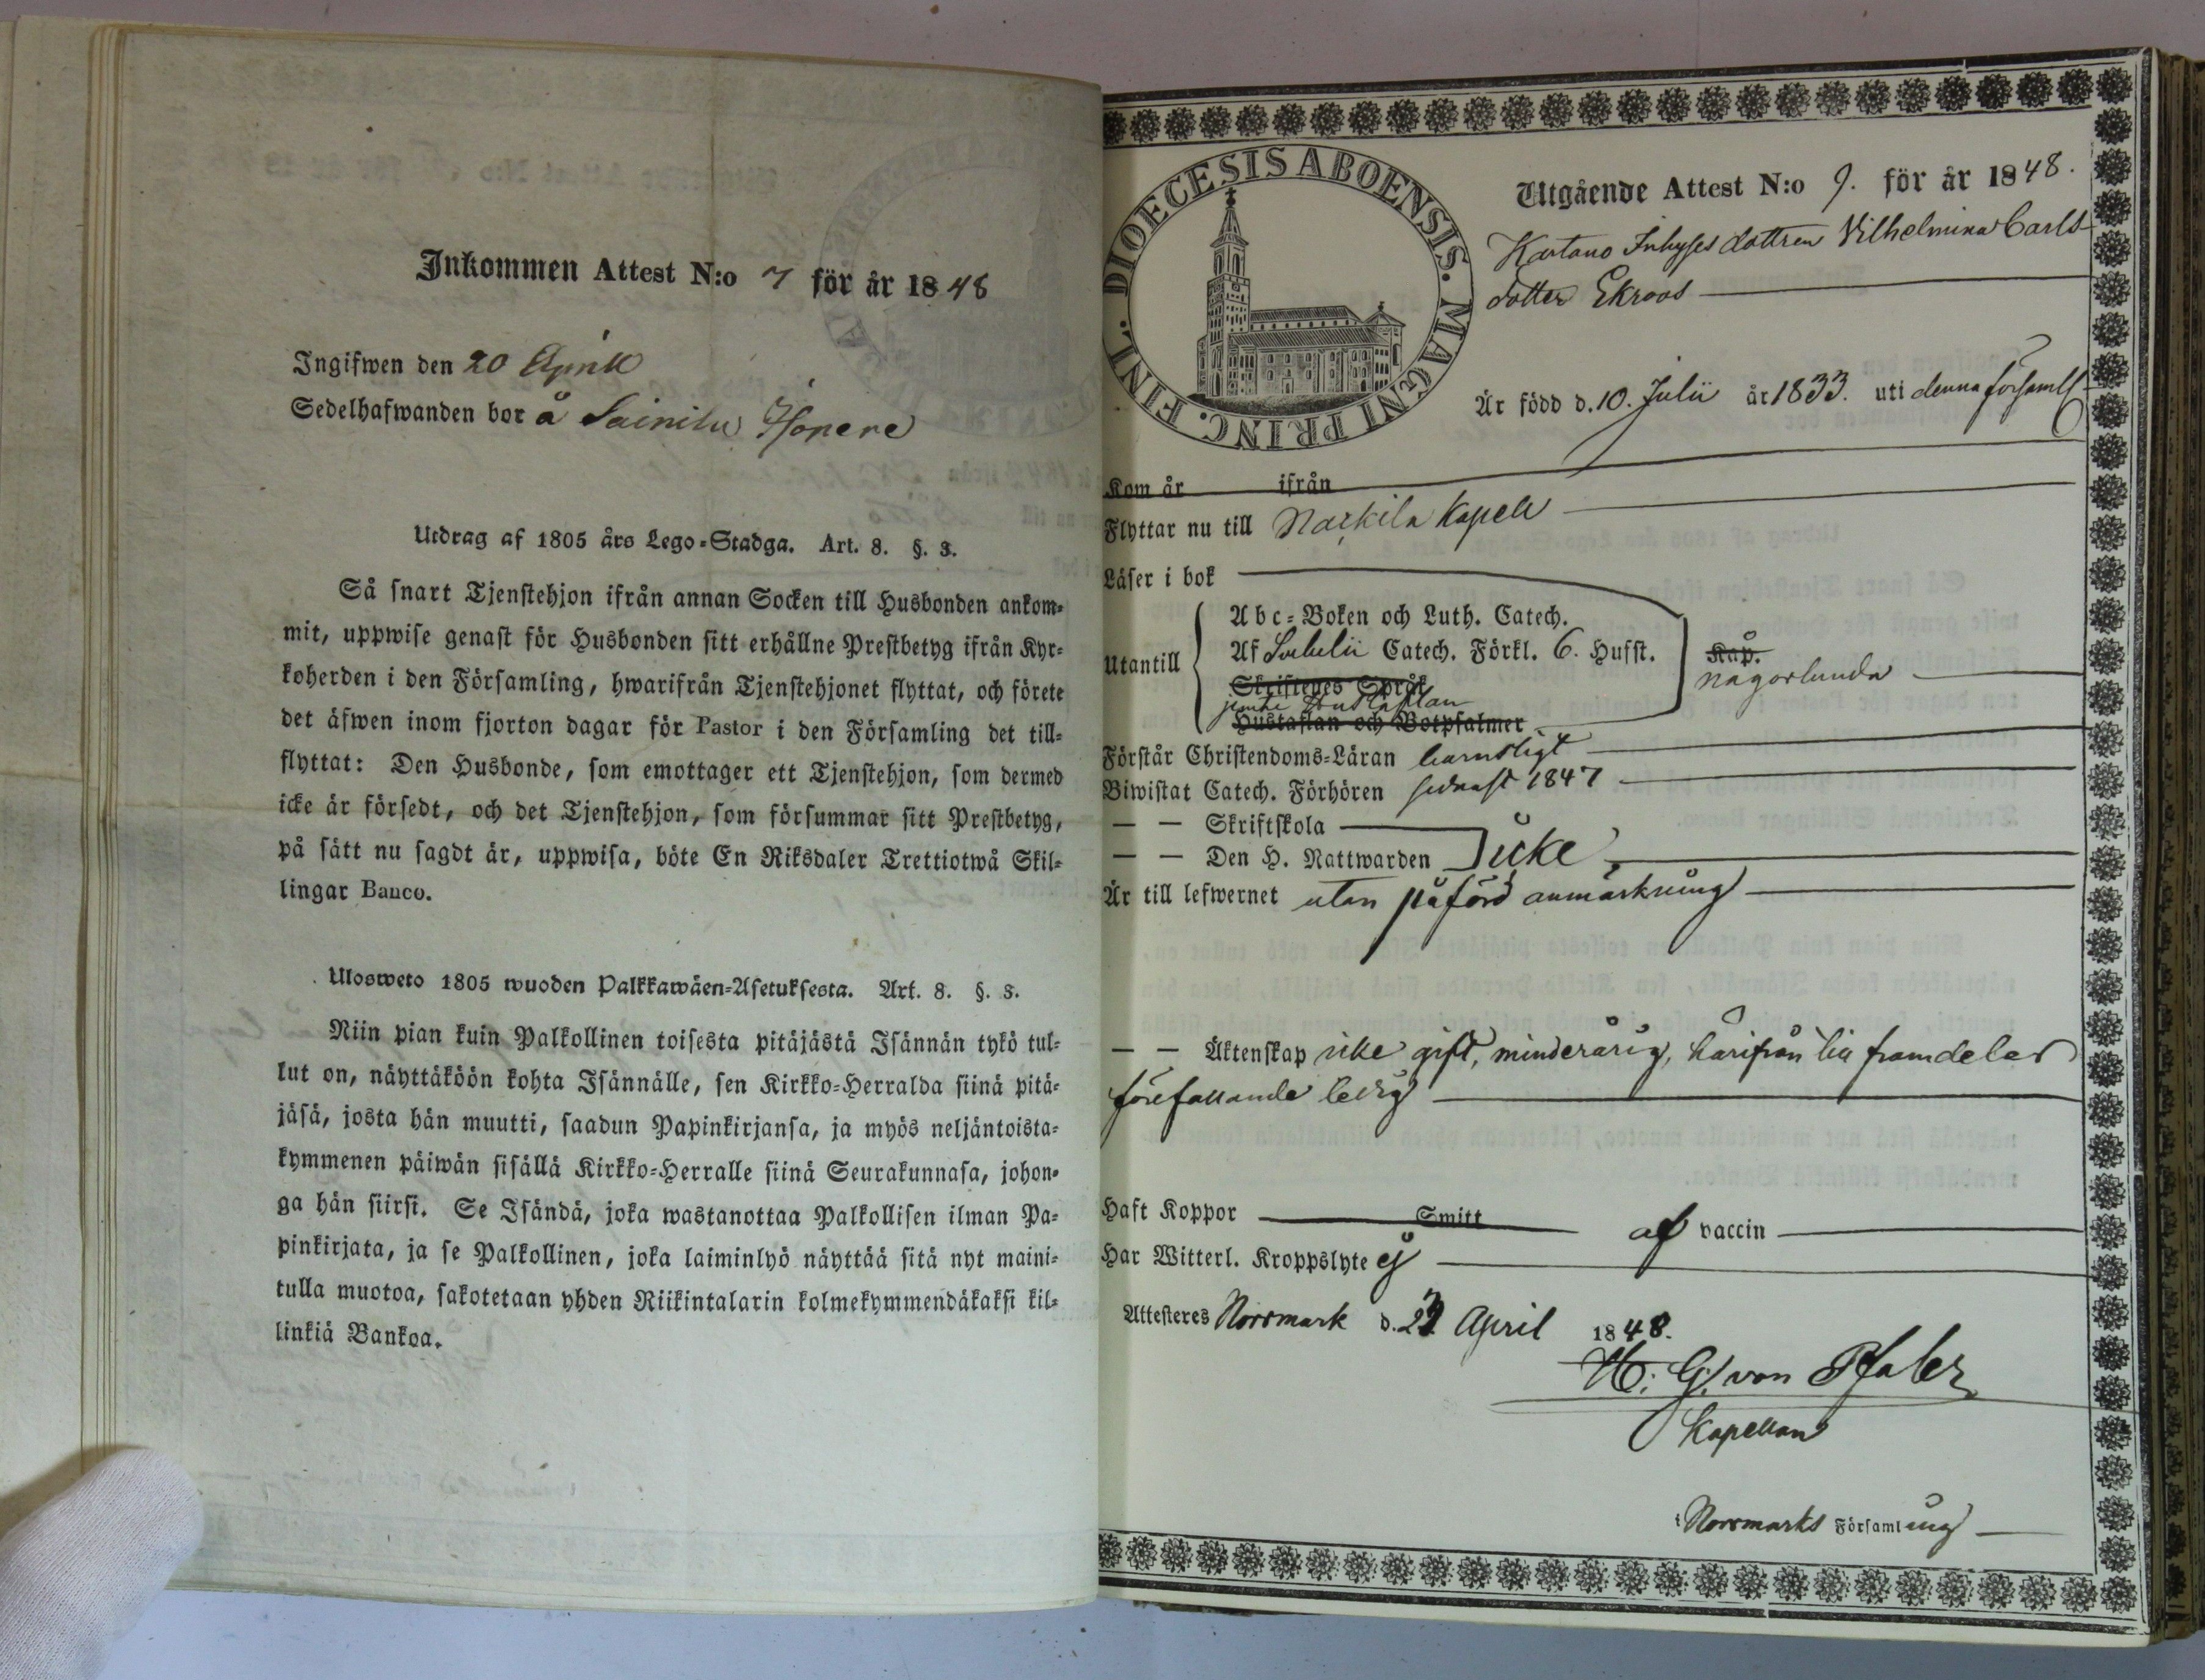 Inkommen Attest N:o 7 för år 1848
Ingifwen den 20 Aprill
Sedelhafwanden bor å Sainilu
Utdrag af 1805 års Lego-Stadga. Art. 8. §. 3.
Så snart Tjenstehjon ifrån annan Socken till Husbonden ankom-
mit, uppwise genast för Husbonden sitt erhållne Prestbetyg ifrån Kyr-
koherden i den Församling, hwarifrån Tjenstehjonet flyttat, och förete
det äfwen inom fjorton dagar för Pastor i den Församling det till-
flyttat: Den Husbonde, som emottager ett Tjenstehjon, som dermed
icke är försedt, och det Tjenstehjon, som försummar sitt Prestbetyg,
på sätt nu sagdt är, uppwisa, böte En Riksdaler Trettiotwå Skil-
lingar Banco.
Ulosweto 1805 wuoden Palkkawäen-Asetuksesta. Art. 8. §. 3.
Niin pian kuin Palkollinen toisesta pitäjästä Isännän tykö tul-
lut on, näyttäköön kohta Isännälle, sen Kirkko-Herralda siinä pitä-
jäsä, josta hän muutti, saadun Papinkirjansa, ja myös neljäntoista-
kymmenen päiwän sisällä Kirkko-Herralle siinä Seurakunnasa, johon-
ga hän siirsi. Se Isändä, joka wastanottaa Palkollisen ilman Pa-
pinkirjata, ja se Palkollinen, joka laiminlyö näyttää sitä nyt maini-
tulla muotoa, sakotetaan yhden Riikintalarin kolmekymmendäkaksi kil-
linkiä Bankoa.
DIOECESIS ABOENSIS. MAGNI PRINC. FINL.
Utgående Attest N:o 9. för år 1848.
Kartano Inhyses dottren Vilhelmina Carls-
dotter Ekroos
Är född d. 10. Julii år 1833. uti denna församl
Kom år ifrån
Flyttar nu till Nackila Kapell
Läser i bok
Utantill
Abc-Boken och Luth. Catech.
Af Svebelii Catech. Förkl. 6. Hufst.
Skriftenes Språk
jemte Hustaflan
Hustaflan och Botpsalmer
Kap.
någorlunda
Förstår Christendoms-Läran barnsligt
Biwistat Catech. Förhören sednast 1847
— — Skriftskola
— — Den H. Nattwarden icke
Är till lefwernet utan påförd anmärkning
— — Äktenskap icke gift, minderårig, härifrån till framdeles
förefallande ledig
Haft Koppor Smitt af vaccin
Har Witterl. Kroppslyte ej
Attesteres Norrmark d. April 1848.
G. von Pfaler
Kapellan
i Norrmarks Församling